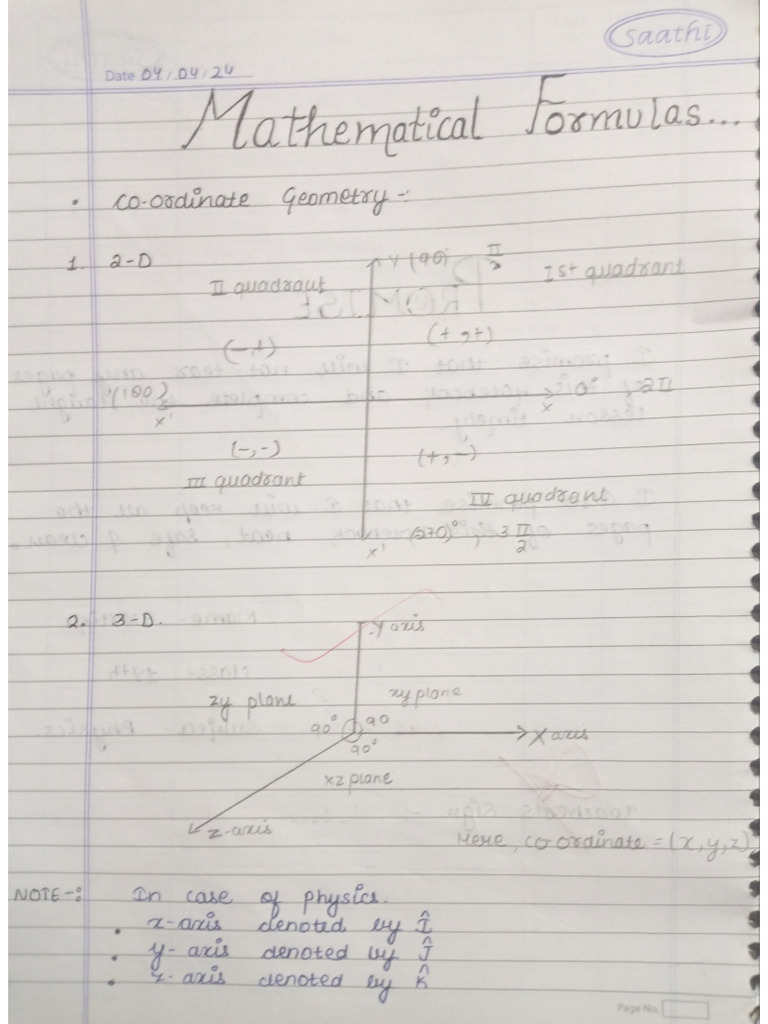 Saathi
Date 04/04/24
Mathematical Formulas...
• CO-ordinate Geometry -:
1. 2-D
Y (90) π/2
II quadraut
Ist quadrant
(-,+)
(+,+)
(180)
x'
x
0°, 2π
(-,-)
(+,-)
III quadrant
IV quadrant
x'
(270)°, 3π/2
2. 3-D.
Y axis
zy plane
xy plane
90°
90
90°
X axis
xz plane
z-axis
Here, co ordinate = (x, y, z)
NOTE -: In case of physics.
• x-axis denoted by Î
• y-axis denoted by Ĵ
• z-axis denoted by K̂
Page No.